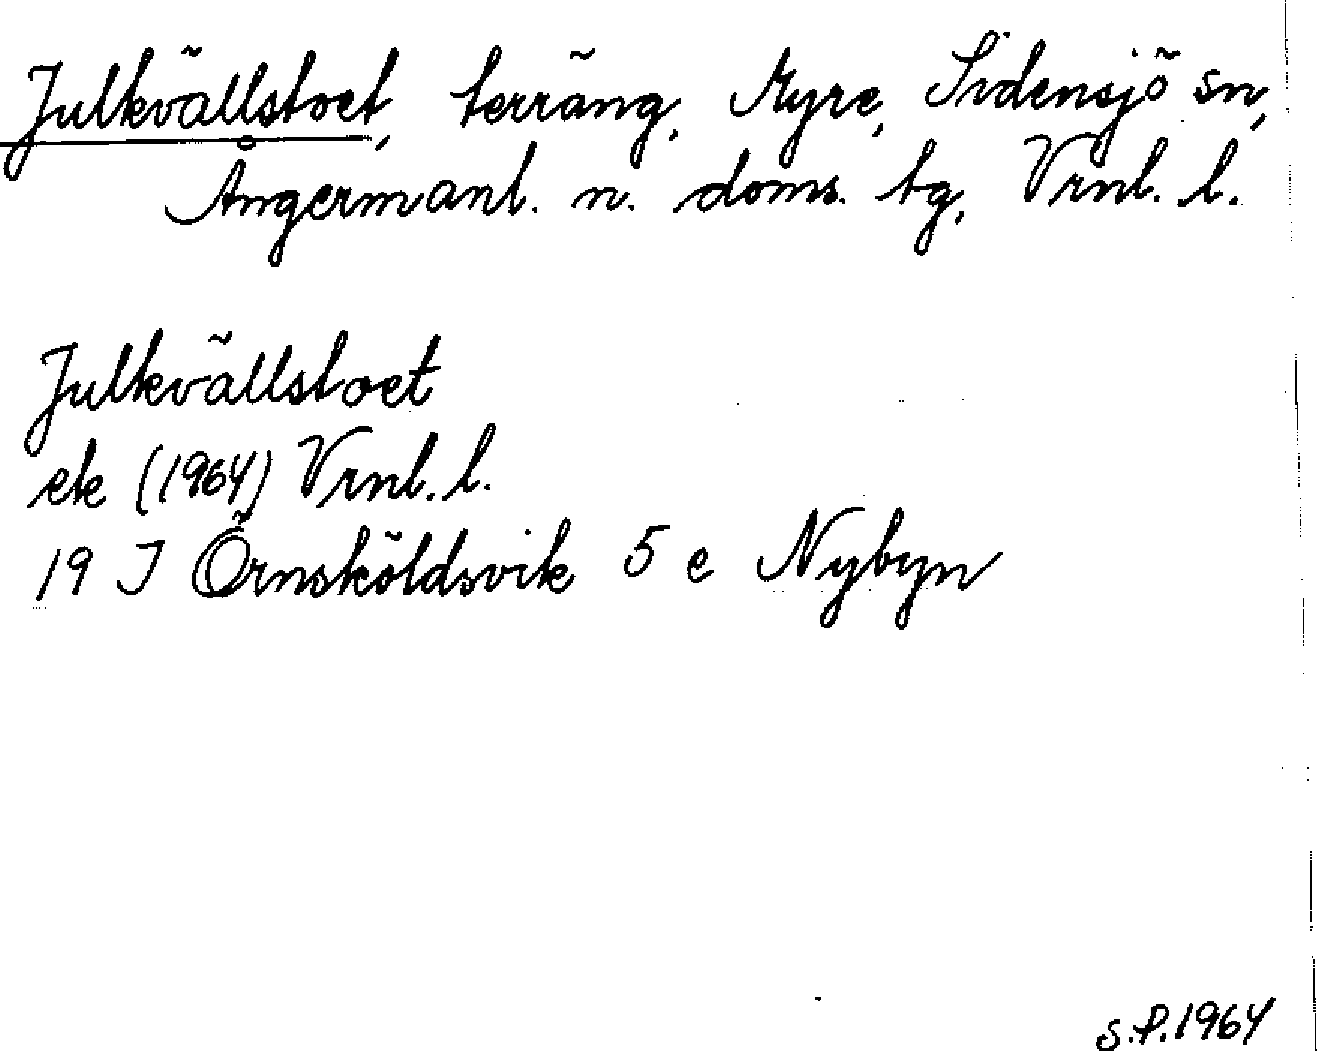 Julkvällstoet, terräng, Myre, Sidensjö sn,
Ångermanl. n. doms. tg, Vrnl. l.
Julkvällstoet
ek (1964) Vrnl. l.
19 J Örnsköldsvik 5 e Nybyn
S.P. 1964